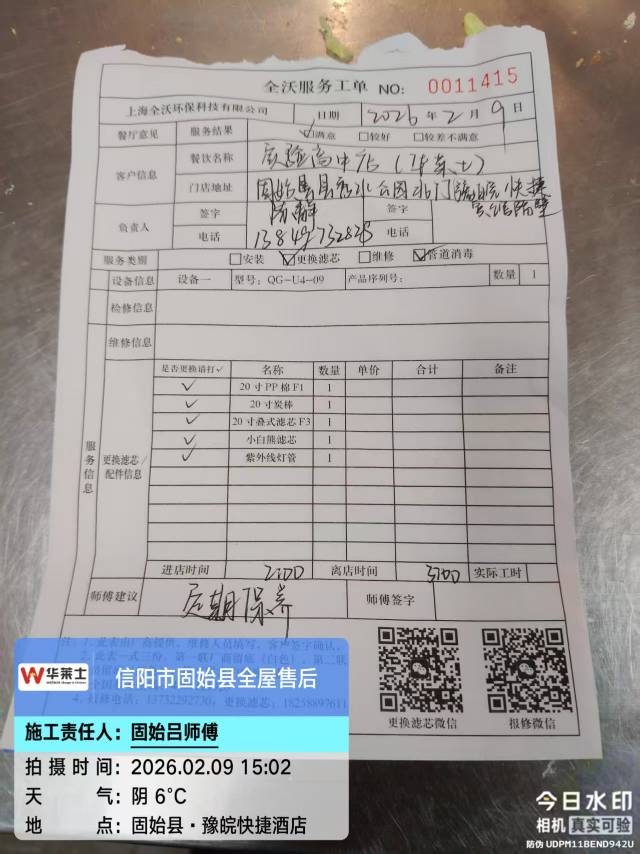 全沃服务工单 NO: 0011415
上海全沃环保科技有限公司 日期 2026年2月9日
餐厅意见 服务结果 ☑满意 □较好 □较差不满意
客户信息 餐饮名称 实验高中店(华莱士)
门店地址 固始县
负责人 签字 签字
电话 电话
服务类别 □安装 ☑更换滤芯 □维修 ☑管道消毒
设备信息 设备一 型号: QG-U4-09 产品序列号: 数量 1
检修信息
维修信息
服务信息
更换滤芯/配件信息
是否更换请打✓ 名称 数量 单价 合计 备注
✓ 20寸PP棉F1 1
✓ 20寸炭棒 1
✓ 20寸叠式滤芯F3 1
✓ 小白熊滤芯 1
✓ 紫外线灯管 1
进店时间 2:00 离店时间 3:00 实际工时
师傅建议 定期保养 师傅签字
更换滤芯微信 报修微信
华莱士
信阳市固始县全屋售后
施工责任人: 固始吕师傅
拍摄时间: 2026.02.09 15:02
天气: 阴 6°C
地点: 固始县·豫皖快捷酒店
今日水印
相机 真实可验
防伪 UDPM11BEND942U